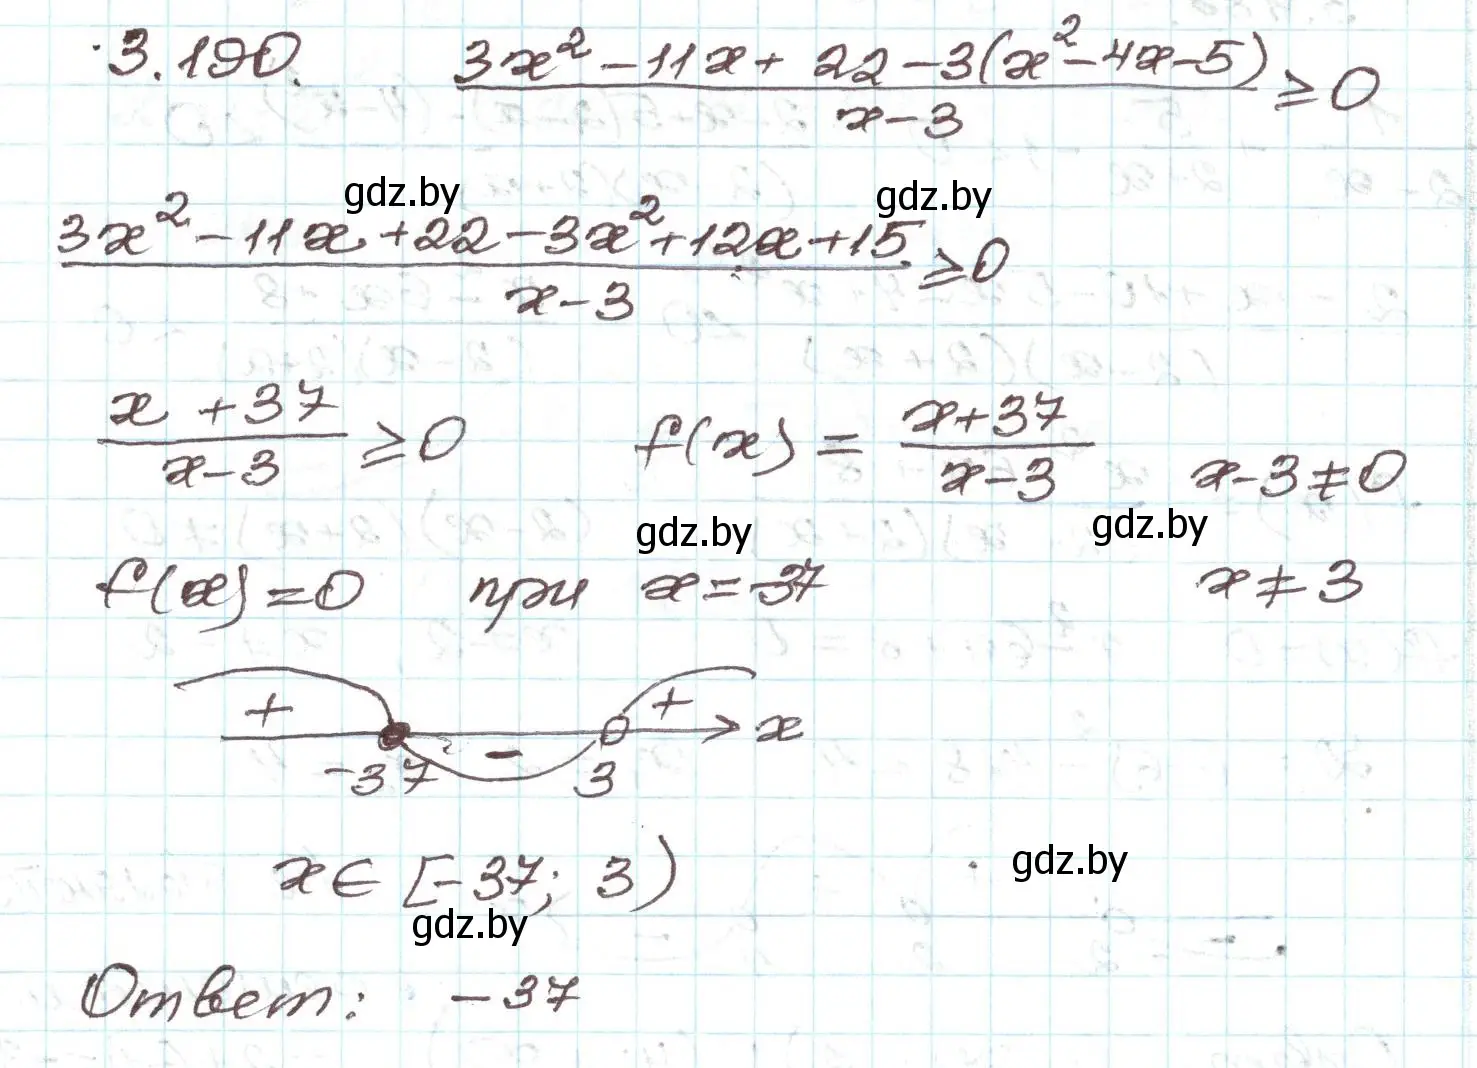 3.190. (3x² - 11x + 22 - 3(x² - 4x - 5))/(x - 3) ≥ 0
gdz.by gdz.by
(3x² - 11x + 22 - 3x² + 12x + 15)/(x - 3) ≥ 0
(x + 37)/(x - 3) ≥ 0 f(x) = (x + 37)/(x - 3) x - 3 ≠ 0
gdz.by gdz.by
f(x) = 0 при x = -37 x ≠ 3
+ - + x
-37 3
x ∈ [-37; 3)
gdz.by
gdz.by
Ответ: -37